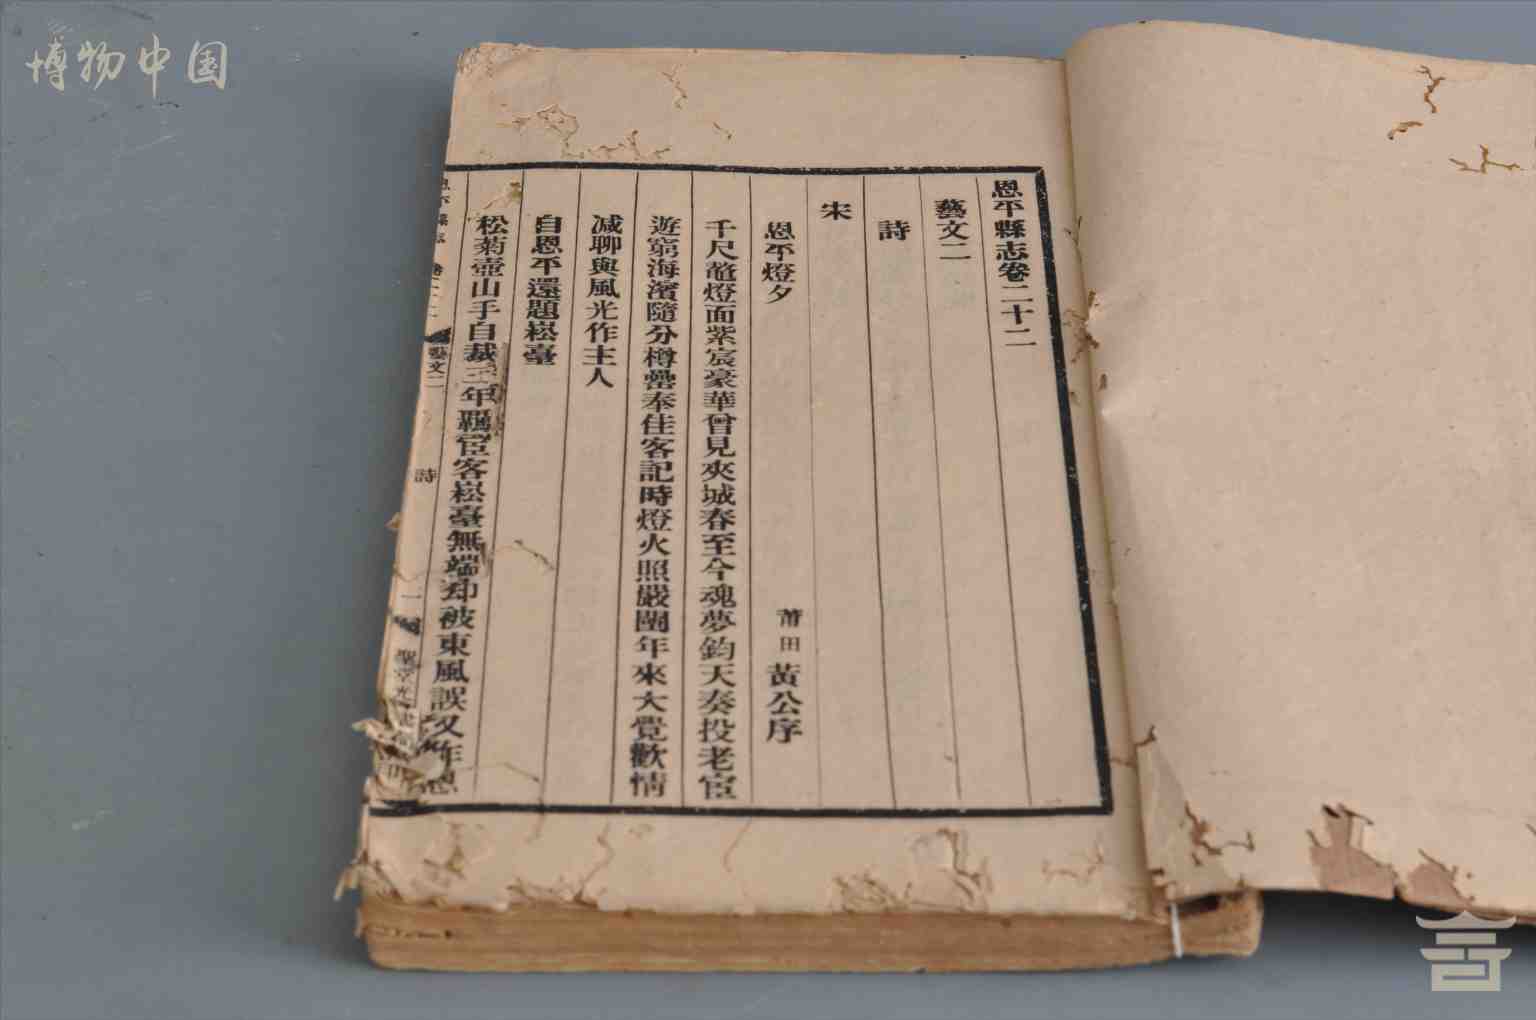 博物中国
恩平縣志卷二十二
藝文二
詩
宋
恩平燈夕 莆田黃公序
千尺鼇燈面紫宸豪華曾見夾城春至今魂夢鈞天奏投老宦
遊窮海濱隨分樽罍奉佳客記時燈火照嚴闉年來大覺歡情
減聊與風光作主人
自恩平還題崧臺
松菊壺山手自裁三年羈宦客崧臺無端却被東風誤又作恩
恩平縣志 卷二十二 藝文二 詩 一